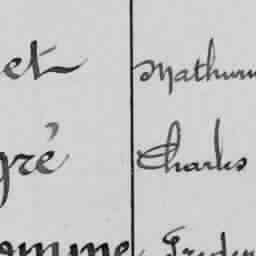 et Mathurin
gré Charles
omme Freder